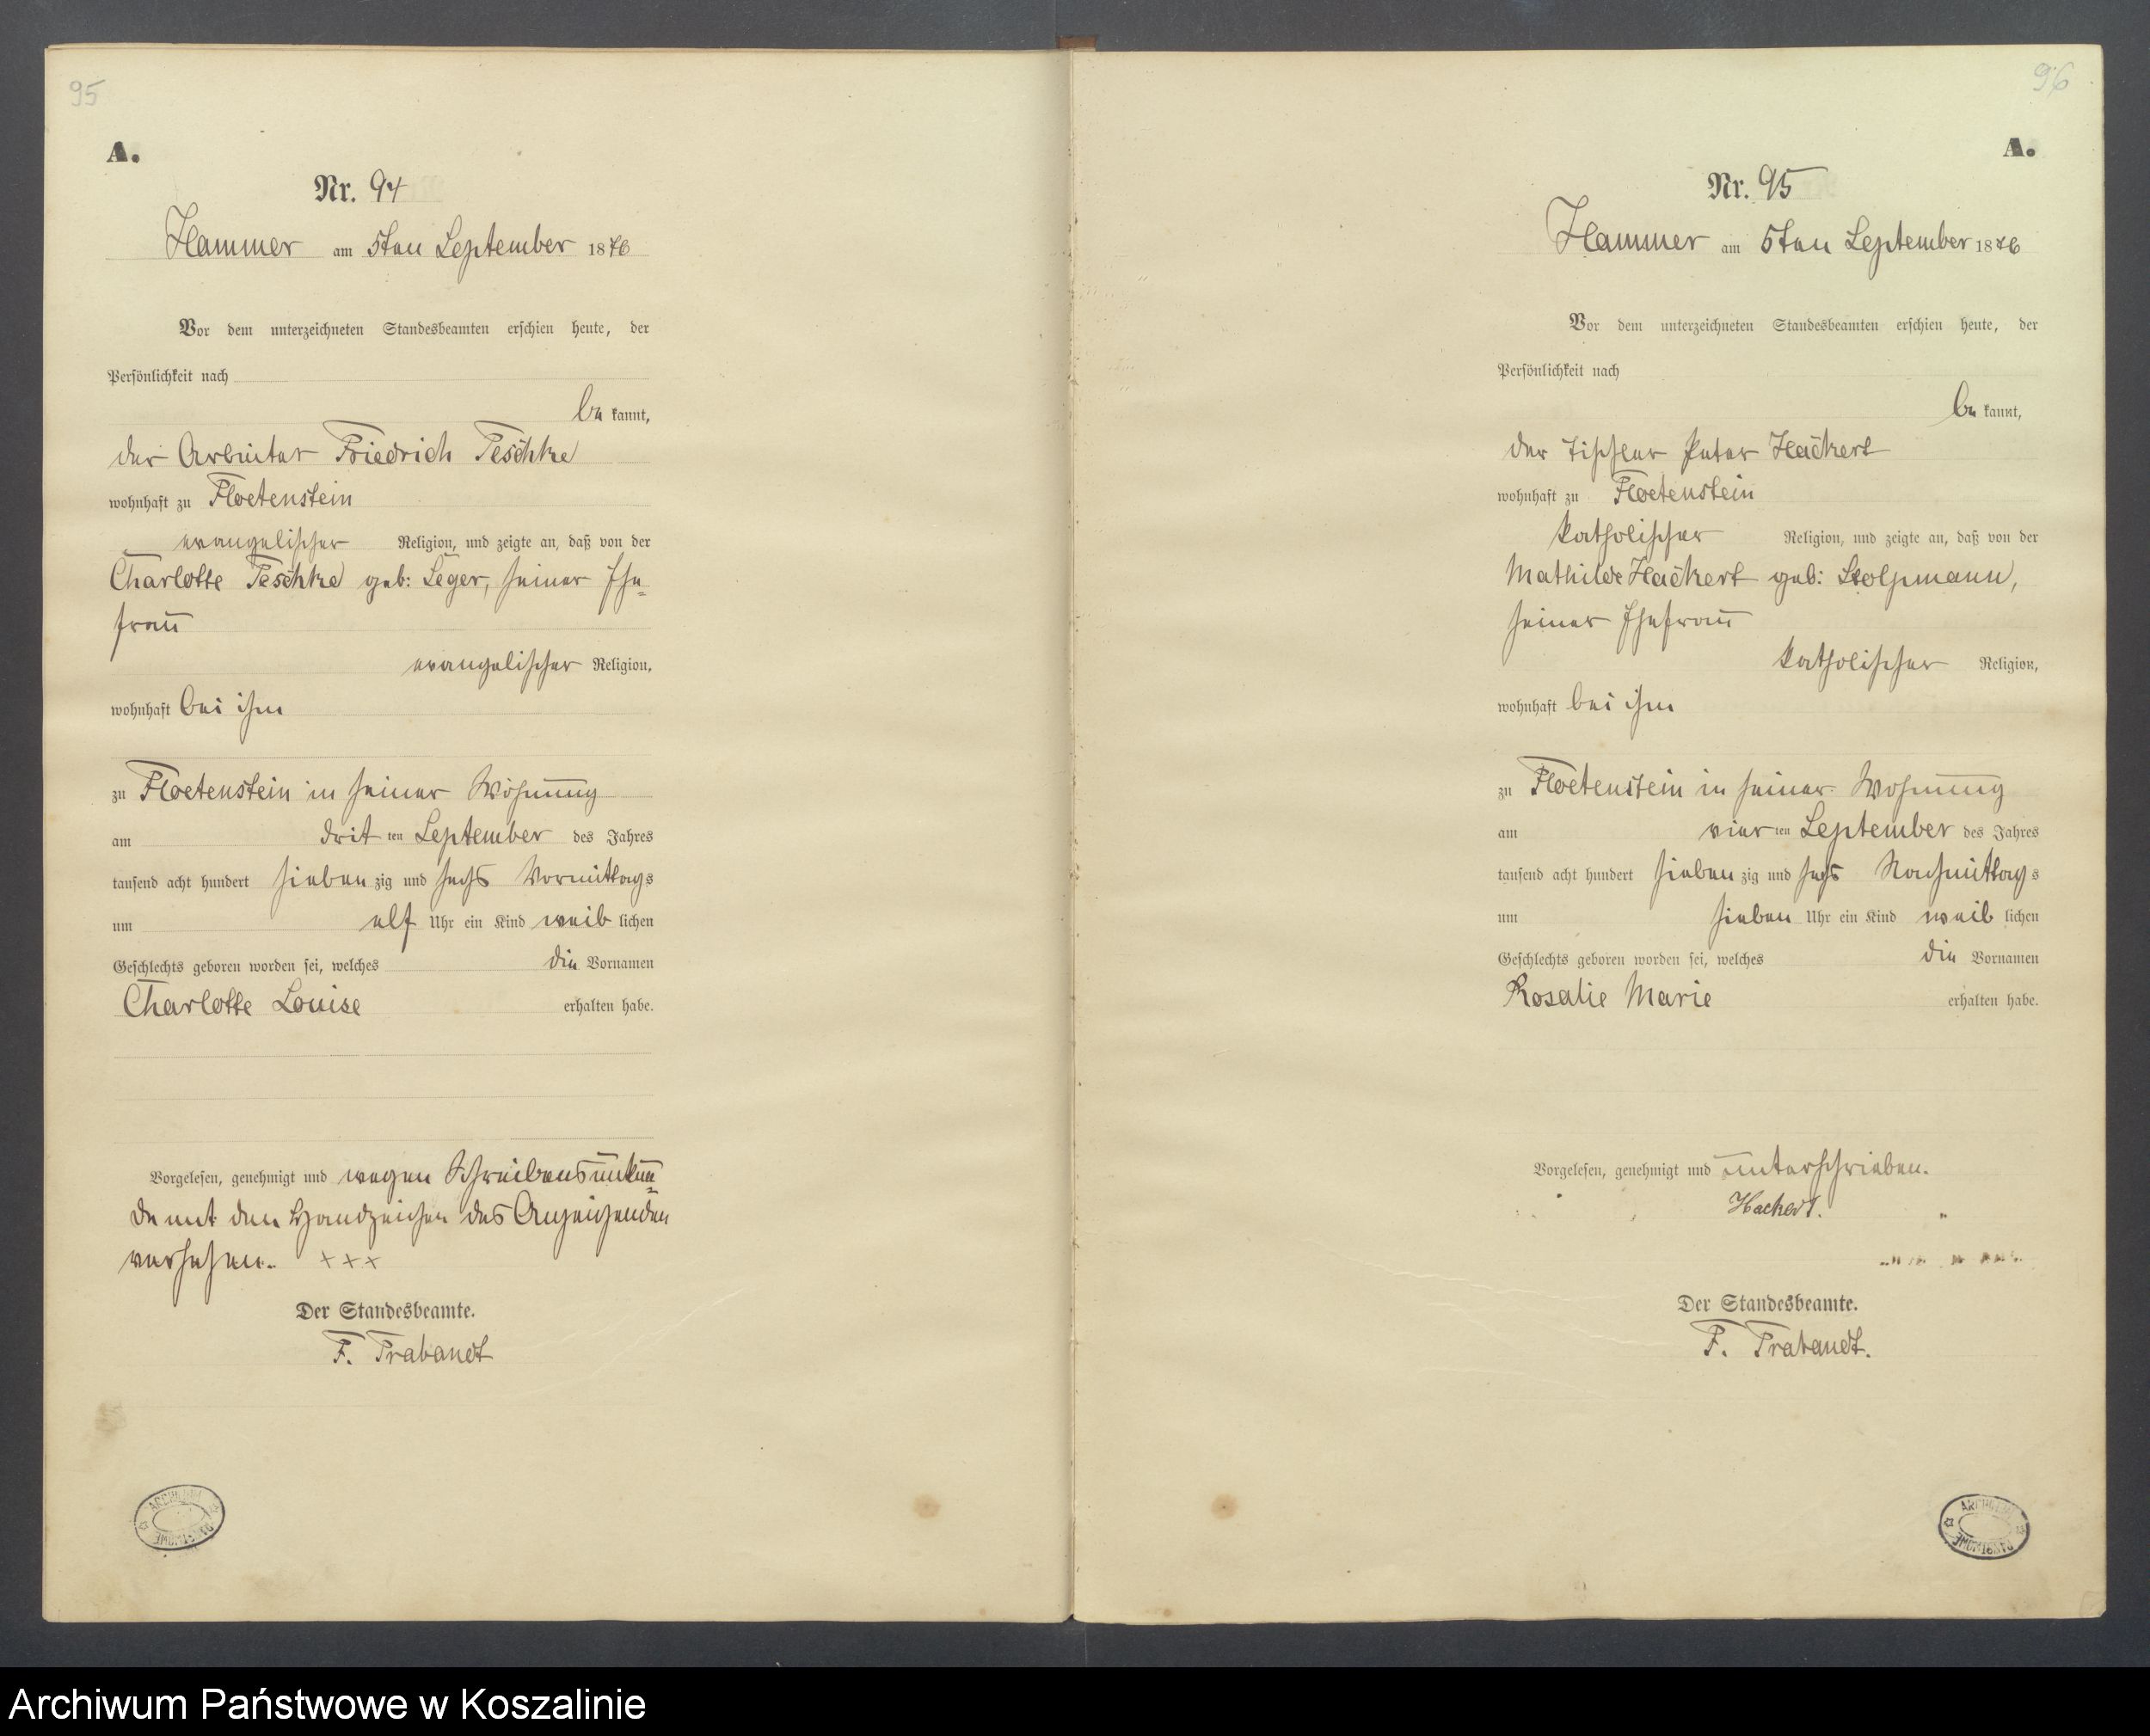 95
A.
Nr. 94
Hammer am 5ten September 1876
Vor dem unterzeichneten Standesbeamten erschien heute, der
Persönlichkeit nach
be kannt,
der Arbeiter Friedrich Teschke
wohnhaft zu Floetenstein
evangelischer Religion, und zeigte an, daß von der
Charlotte Teschke geb: Leger, seiner Ehe=
frau
evangelischer Religion,
wohnhaft bei ihm
zu Floetenstein in seiner Wohnung
am drit ten September des Jahres
tausend acht hundert sieben zig und sechs Vormittags
um elf Uhr ein Kind weib lichen
Geschlechts geboren worden sei, welches die Vornamen
Charlotte Louise erhalten habe.
Vorgelesen, genehmigt und wegen Schreibensunkun=
de mit den Handzeichen des Anzeigenden
versehen. +++
Der Standesbeamte.
F. Trabandt
ARCHIWUM PAŃSTWOWE
96
A.
Nr. 95
Hammer am 5ten September 1876
Vor dem unterzeichneten Standesbeamten erschien heute, der
Persönlichkeit nach
be kannt,
der Tischler Peter Hackert
wohnhaft zu Floetenstein
katholischer Religion, und zeigte an, daß von der
Mathilde Hackert geb: Stolpmann,
seiner Ehefrau
katholischer Religion,
wohnhaft bei ihm
zu Floetenstein in seiner Wohnung
am vier ten September des Jahres
tausend acht hundert sieben zig und sechs Nachmittag s
um sieben Uhr ein Kind weib lichen
Geschlechts geboren worden sei, welches die Vornamen
Rosalie Marie erhalten habe.
Vorgelesen, genehmigt und unterschrieben.
Hackert.
Der Standesbeamte.
F. Trabandt.
ARCHIWUM PAŃSTWOWE
Archiwum Państwowe w Koszalinie